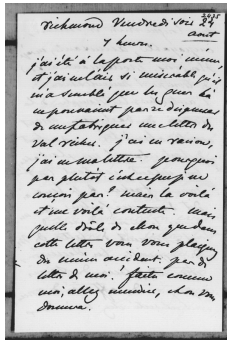 Richmond Vendredi soir 24
août
7 heures.
j'ai été à la poste moi même
et j'avais l'air si misérable qu'il
m'a semblé que les gens là
ne pouvaient pas se dispenser
de me fabriquer une lettre du
Val Richer. j'avais raison,
j'ai ma lettre. pourquoi
pas plutôt c'est ce que je ne
conçois pas! mais la voilà
et me voilà contente. mais
quelle drôle de chose que dans
cette lettre vous vous plaigniez
du même accident. pas de
lettre de moi! faites comme
moi, allez mendier, et on vous
donnera.